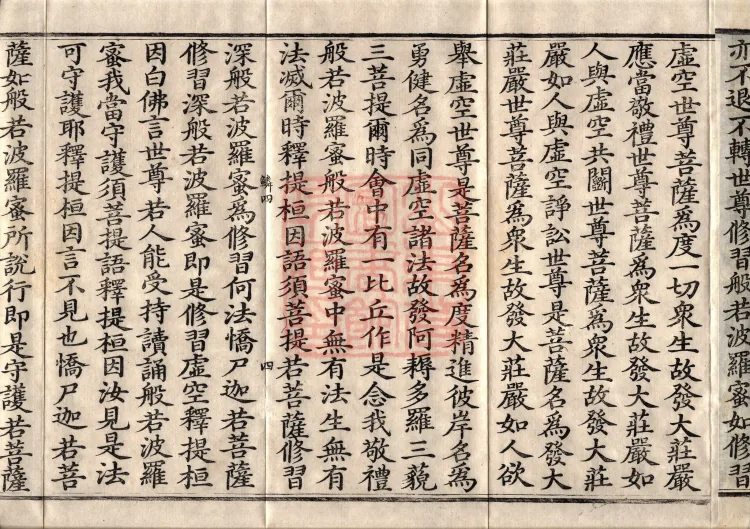 亦不退不轉世尊修習般若波羅蜜如修習
虛空世尊菩薩為度一切衆生故發大莊嚴
應當敬禮世尊菩薩為衆生故發大莊嚴如
人與虛空共鬬世尊菩薩為衆生故發大莊
嚴如人與虛空諍訟世尊是菩薩名為發大
莊嚴世尊菩薩為衆生故發大莊嚴如人欲
舉虛空世尊是菩薩名為度精進彼岸名為
勇健名為同虛空諸法故發阿耨多羅三藐
三菩提爾時會中有一比丘作是念我敬禮
般若波羅蜜般若波羅蜜中無有法生無有
法滅爾時釋提桓因語須菩提若菩薩修習
鱗四
四
深般若波羅蜜為修習何法憍尸迦若菩薩
修習深般若波羅蜜即是修習虛空釋提桓
因白佛言世尊若人能受持讀誦般若波羅
蜜我當守護須菩提語釋提桓因汝見是法
可守護耶釋提桓因言不見也憍尸迦若菩
薩如般若波羅蜜所說行即是守護若菩薩